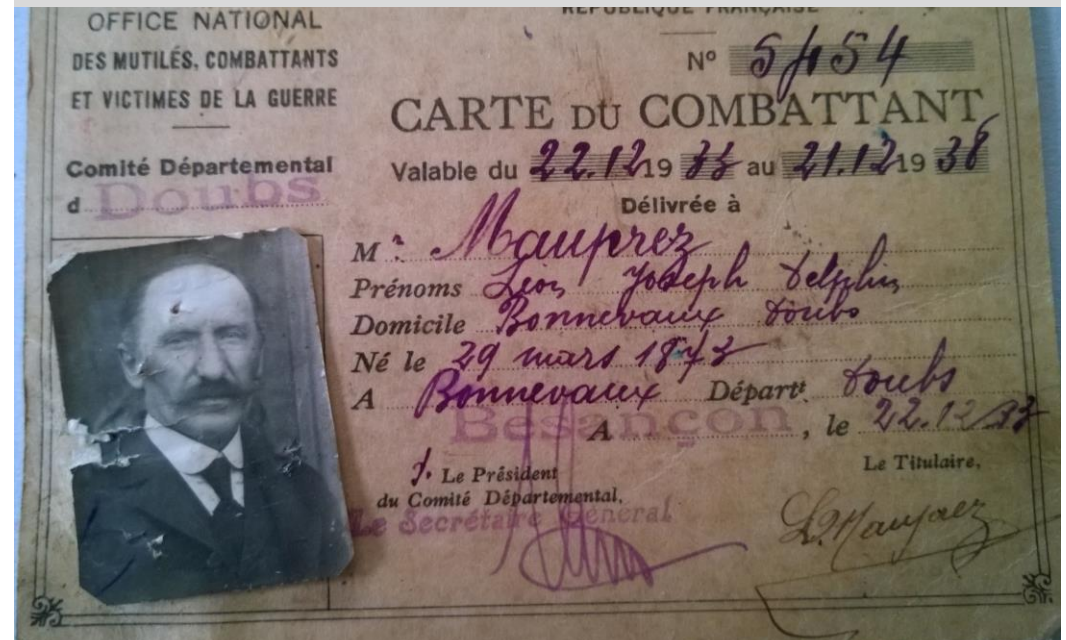 OFFICE NATIONAL
DES MUTILÉS, COMBATTANTS
ET VICTIMES DE LA GUERRE
Comité Départemental
d Doubs
RÉPUBLIQUE FRANÇAISE
Nº 5454
CARTE DU COMBATTANT
Valable du 22.12 19 33 au 21.12 19 38
Délivrée à
M Mauprez
Prénoms Léon Joseph Delphin
Domicile Bonnevaux Doubs
Né le 29 mars 1873
A Bonnevaux Départt Doubs
A Besançon, le 22.12.33
Le Président
du Comité Départemental,
Le Secrétaire Général
Le Titulaire,